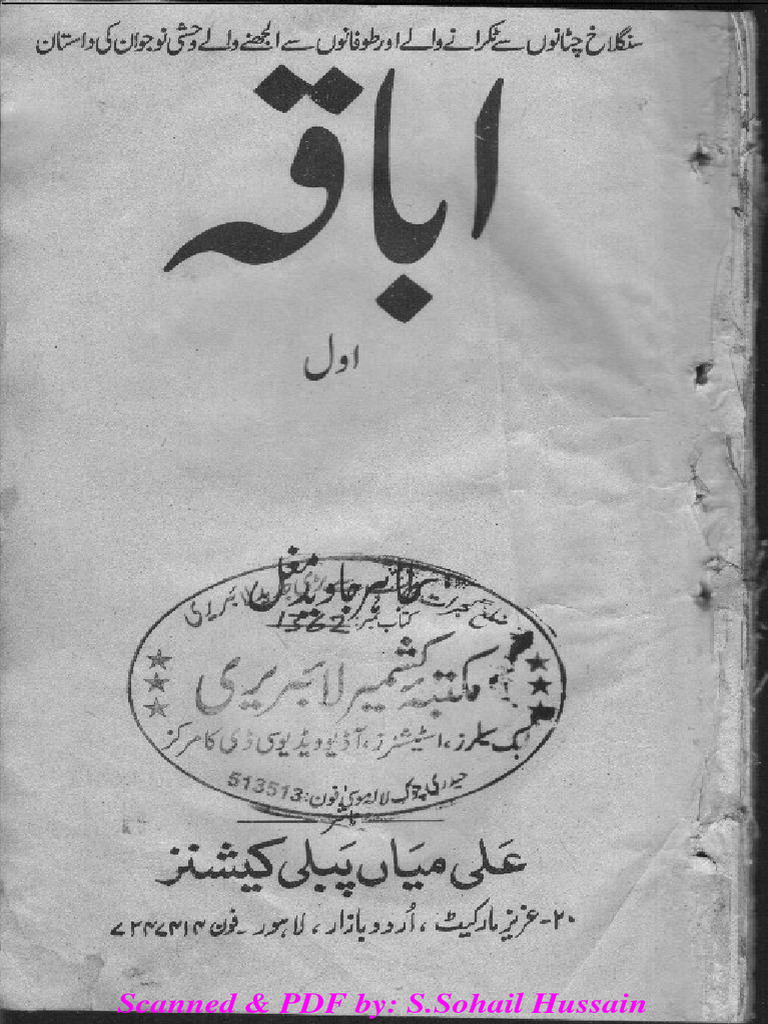 سنگلاخ چٹانوں سے ٹکرانے والے اور طوفانوں سے الجھنے والے وحشی نوجوان کی داستان
اباقہ
اول
طاہر جاوید مغل
ضلع گجرات
لائبریری
کتاب نمبر 1362
مکتبہ کشمیر لائبریری
بک سیلرز، اسٹیشنرز، آڈیو ویڈیو سی ڈی کا مرکز
حیدری چوک لالہ موسیٰ فون: 513513
ناشر
علی میاں پبلی کیشنز
۲۰-عزیز مارکیٹ، اُردو بازار، لاہور۔ فون ۷۲۴۷۴۱۴
Scanned & PDF by: S.Sohail Hussain